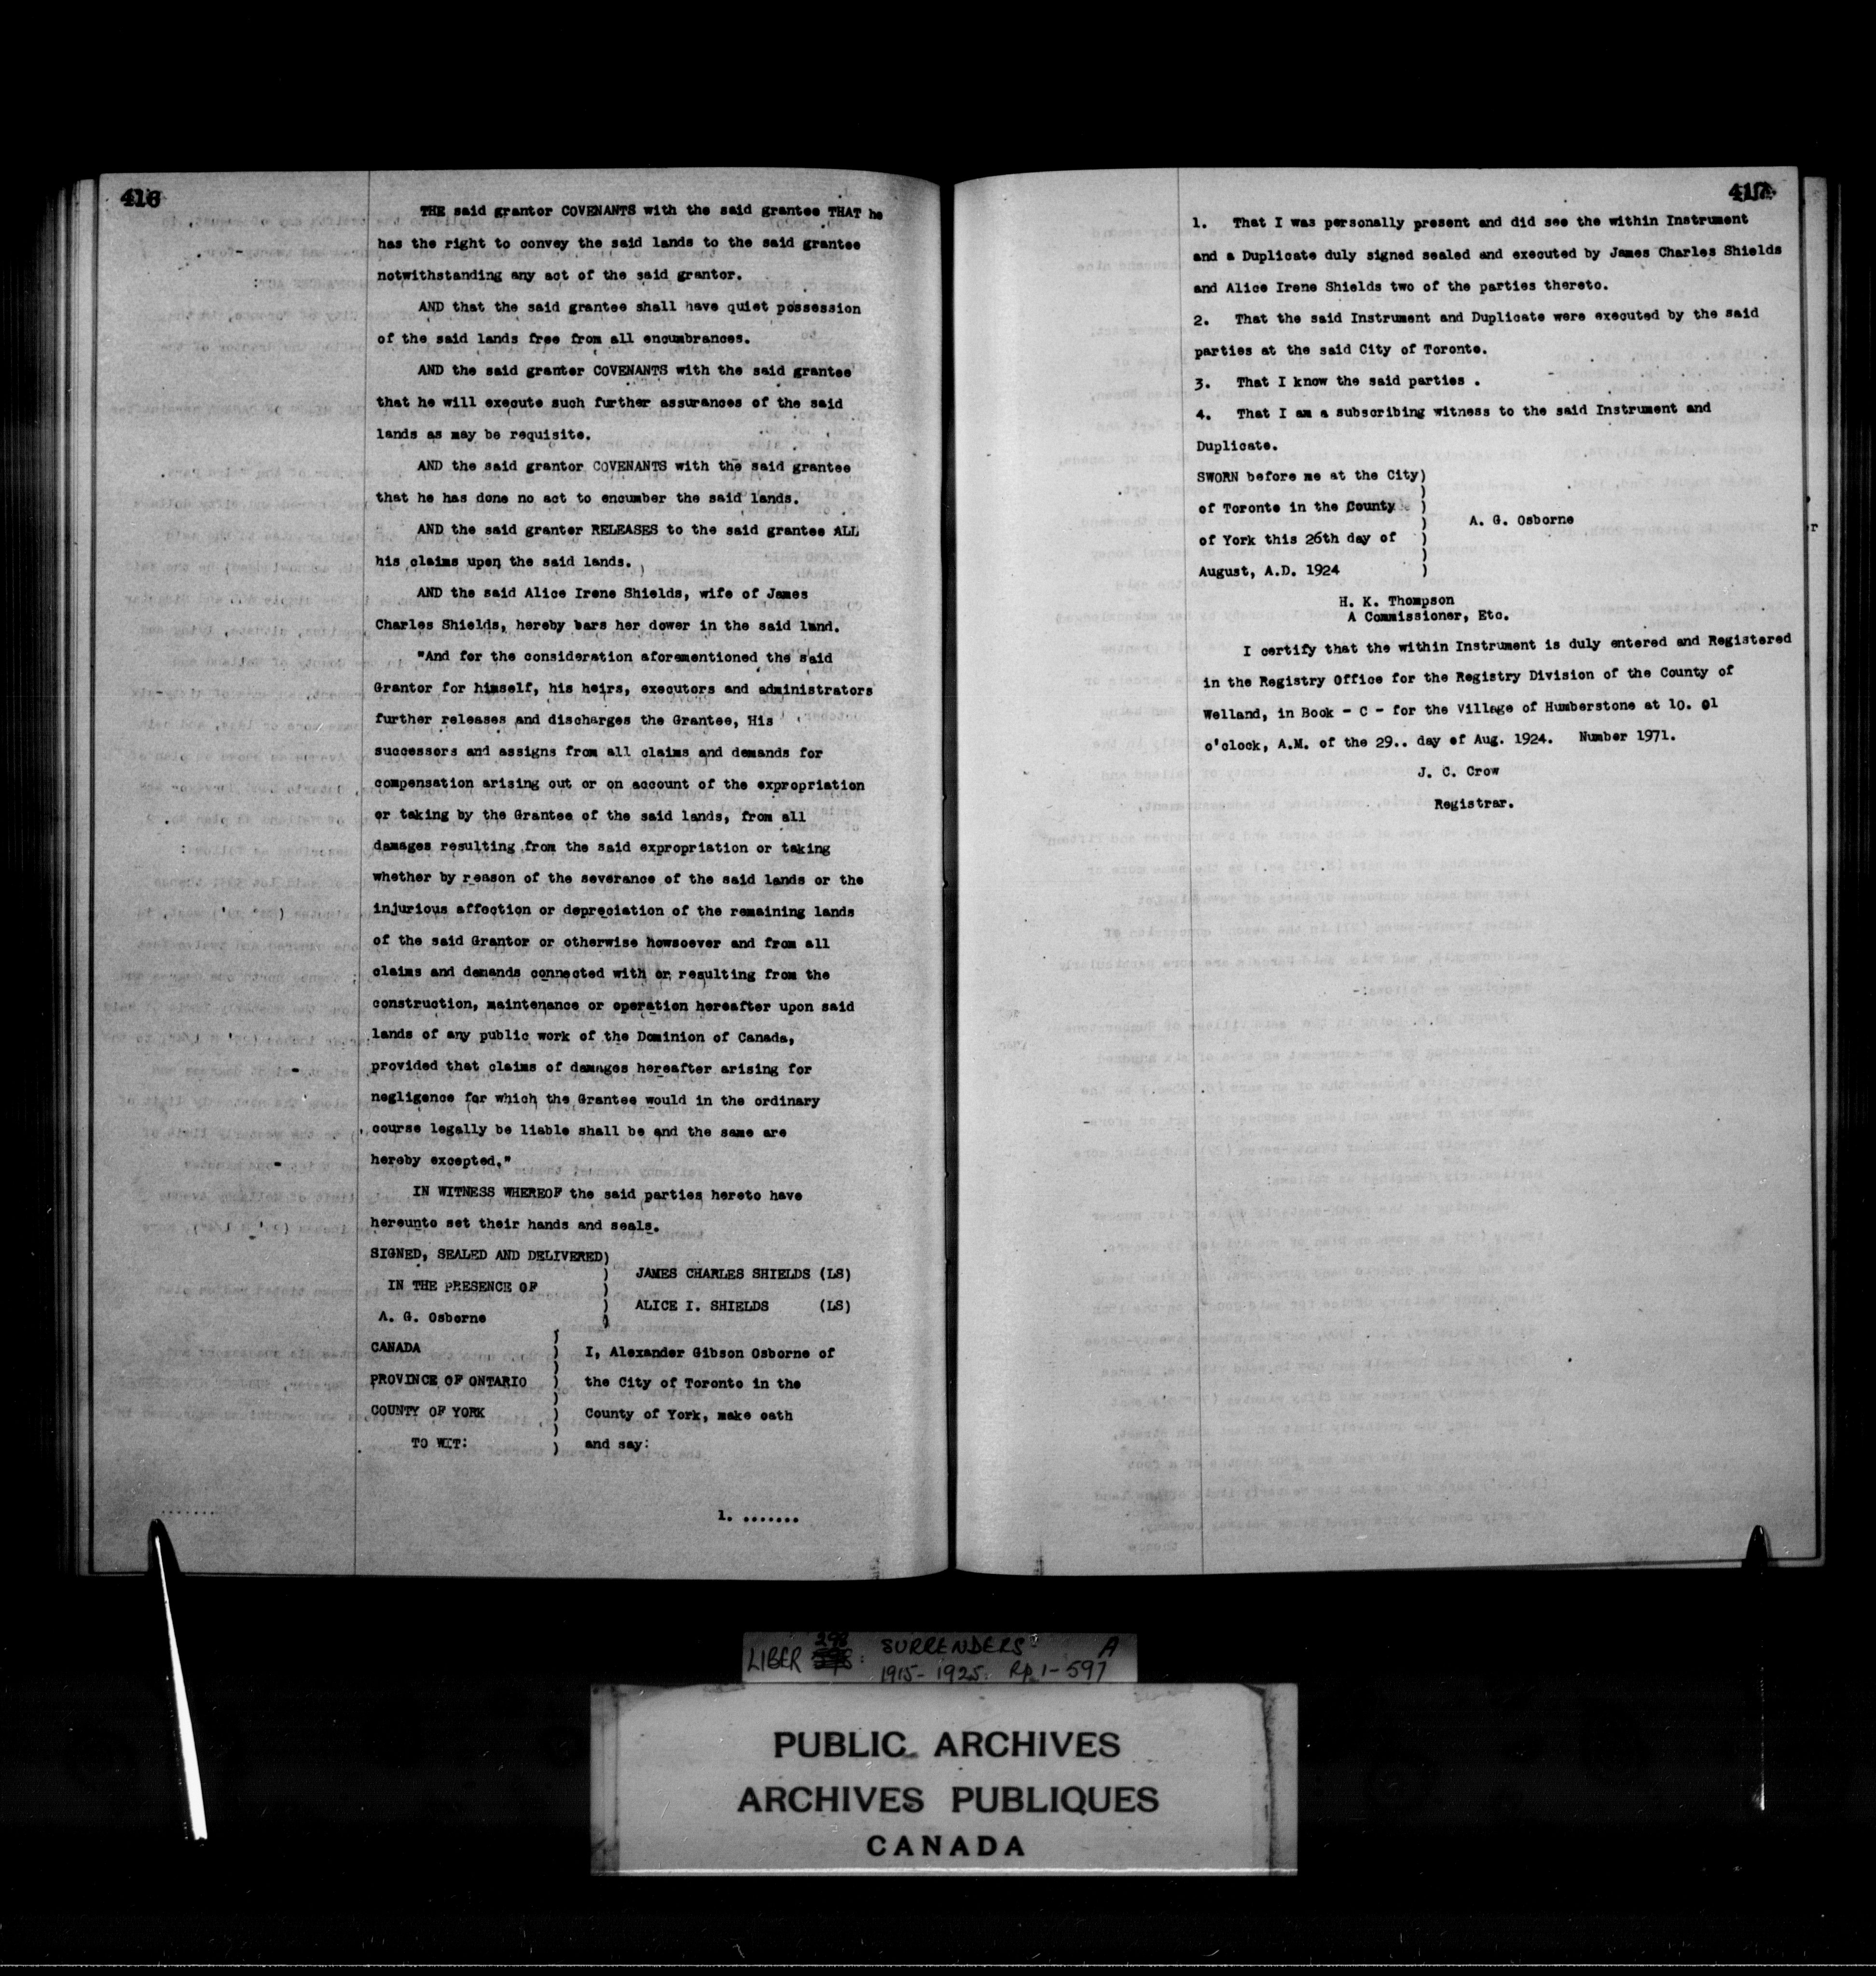 416
THE said grantor COVENANTS with the said grantee THAT he
has the right to convey the said lands to the said grantee
notwithstanding any act of the said grantor.
AND that the said grantee shall have quiet possession
of the said lands free from all encumbrances.
AND the said grantor COVENANTS with the said grantee
that he will execute such further assurances of the said
lands as may be requisite.
AND the said grantor COVENANTS with the said grantee
that he has done no act to encumber the said lands.
AND the said grantor RELEASES to the said grantee ALL
his claims upon the said lands.
AND the said Alice Irene Shields, wife of James
Charles Shields, hereby bars her dower in the said land.
"And for the consideration aforementioned the said
Grantor for himself, his heirs, executors and administrators
further releases and discharges the Grantee, His
successors and assigns from all claims and demands for
compensation arising out or on account of the expropriation
or taking by the Grantee of the said lands, from all
damages resulting from the said expropriation or taking
whether by reason of the severance of the said lands or the
injurious affection or depreciation of the remaining lands
of the said Grantor or otherwise howsoever and from all
claims and demands connected with or resulting from the
construction, maintenance or operation hereafter upon said
lands of any public work of the Dominion of Canada,
provided that claims of damages hereafter arising for
negligence for which the Grantee would in the ordinary
course legally be liable shall be and the same are
hereby excepted."
IN WITNESS WHEREOF the said parties hereto have
hereunto set their hands and seals.
SIGNED, SEALED AND DELIVERED)
JAMES CHARLES SHIELDS (LS)
IN THE PRESENCE OF
ALICE I. SHIELDS (LS)
A. G. Osborne
CANADA ) I, Alexander Gibson Osborne of
PROVINCE OF ONTARIO ) the City of Toronto in the
COUNTY OF YORK ) County of York, make oath
TO WIT: ) and say:
1. .......
417
1. That I was personally present and did see the within Instrument
and a Duplicate duly signed sealed and executed by James Charles Shields
and Alice Irene Shields two of the parties thereto.
2. That the said Instrument and Duplicate were executed by the said
parties at the said City of Toronto.
3. That I know the said parties .
4. That I am a subscribing witness to the said Instrument and
Duplicate.
SWORN before me at the City)
of Toronto in the County )
A. G. Osborne
of York this 26th day of )
August, A.D. 1924 )
H. K. Thompson
A Commissioner, Etc.
I certify that the within Instrument is duly entered and Registered
in the Registry Office for the Registry Division of the County of
Welland, in Book - C - for the Village of Humberstone at 10. 01
o'clock, A.M. of the 29.. day of Aug. 1924. Number 1971.
J. C. Crow
Registrar.
LIBER 298: SURRENDERS A
1915-1925. Pp. 1-597
PUBLIC ARCHIVES
ARCHIVES PUBLIQUES
CANADA